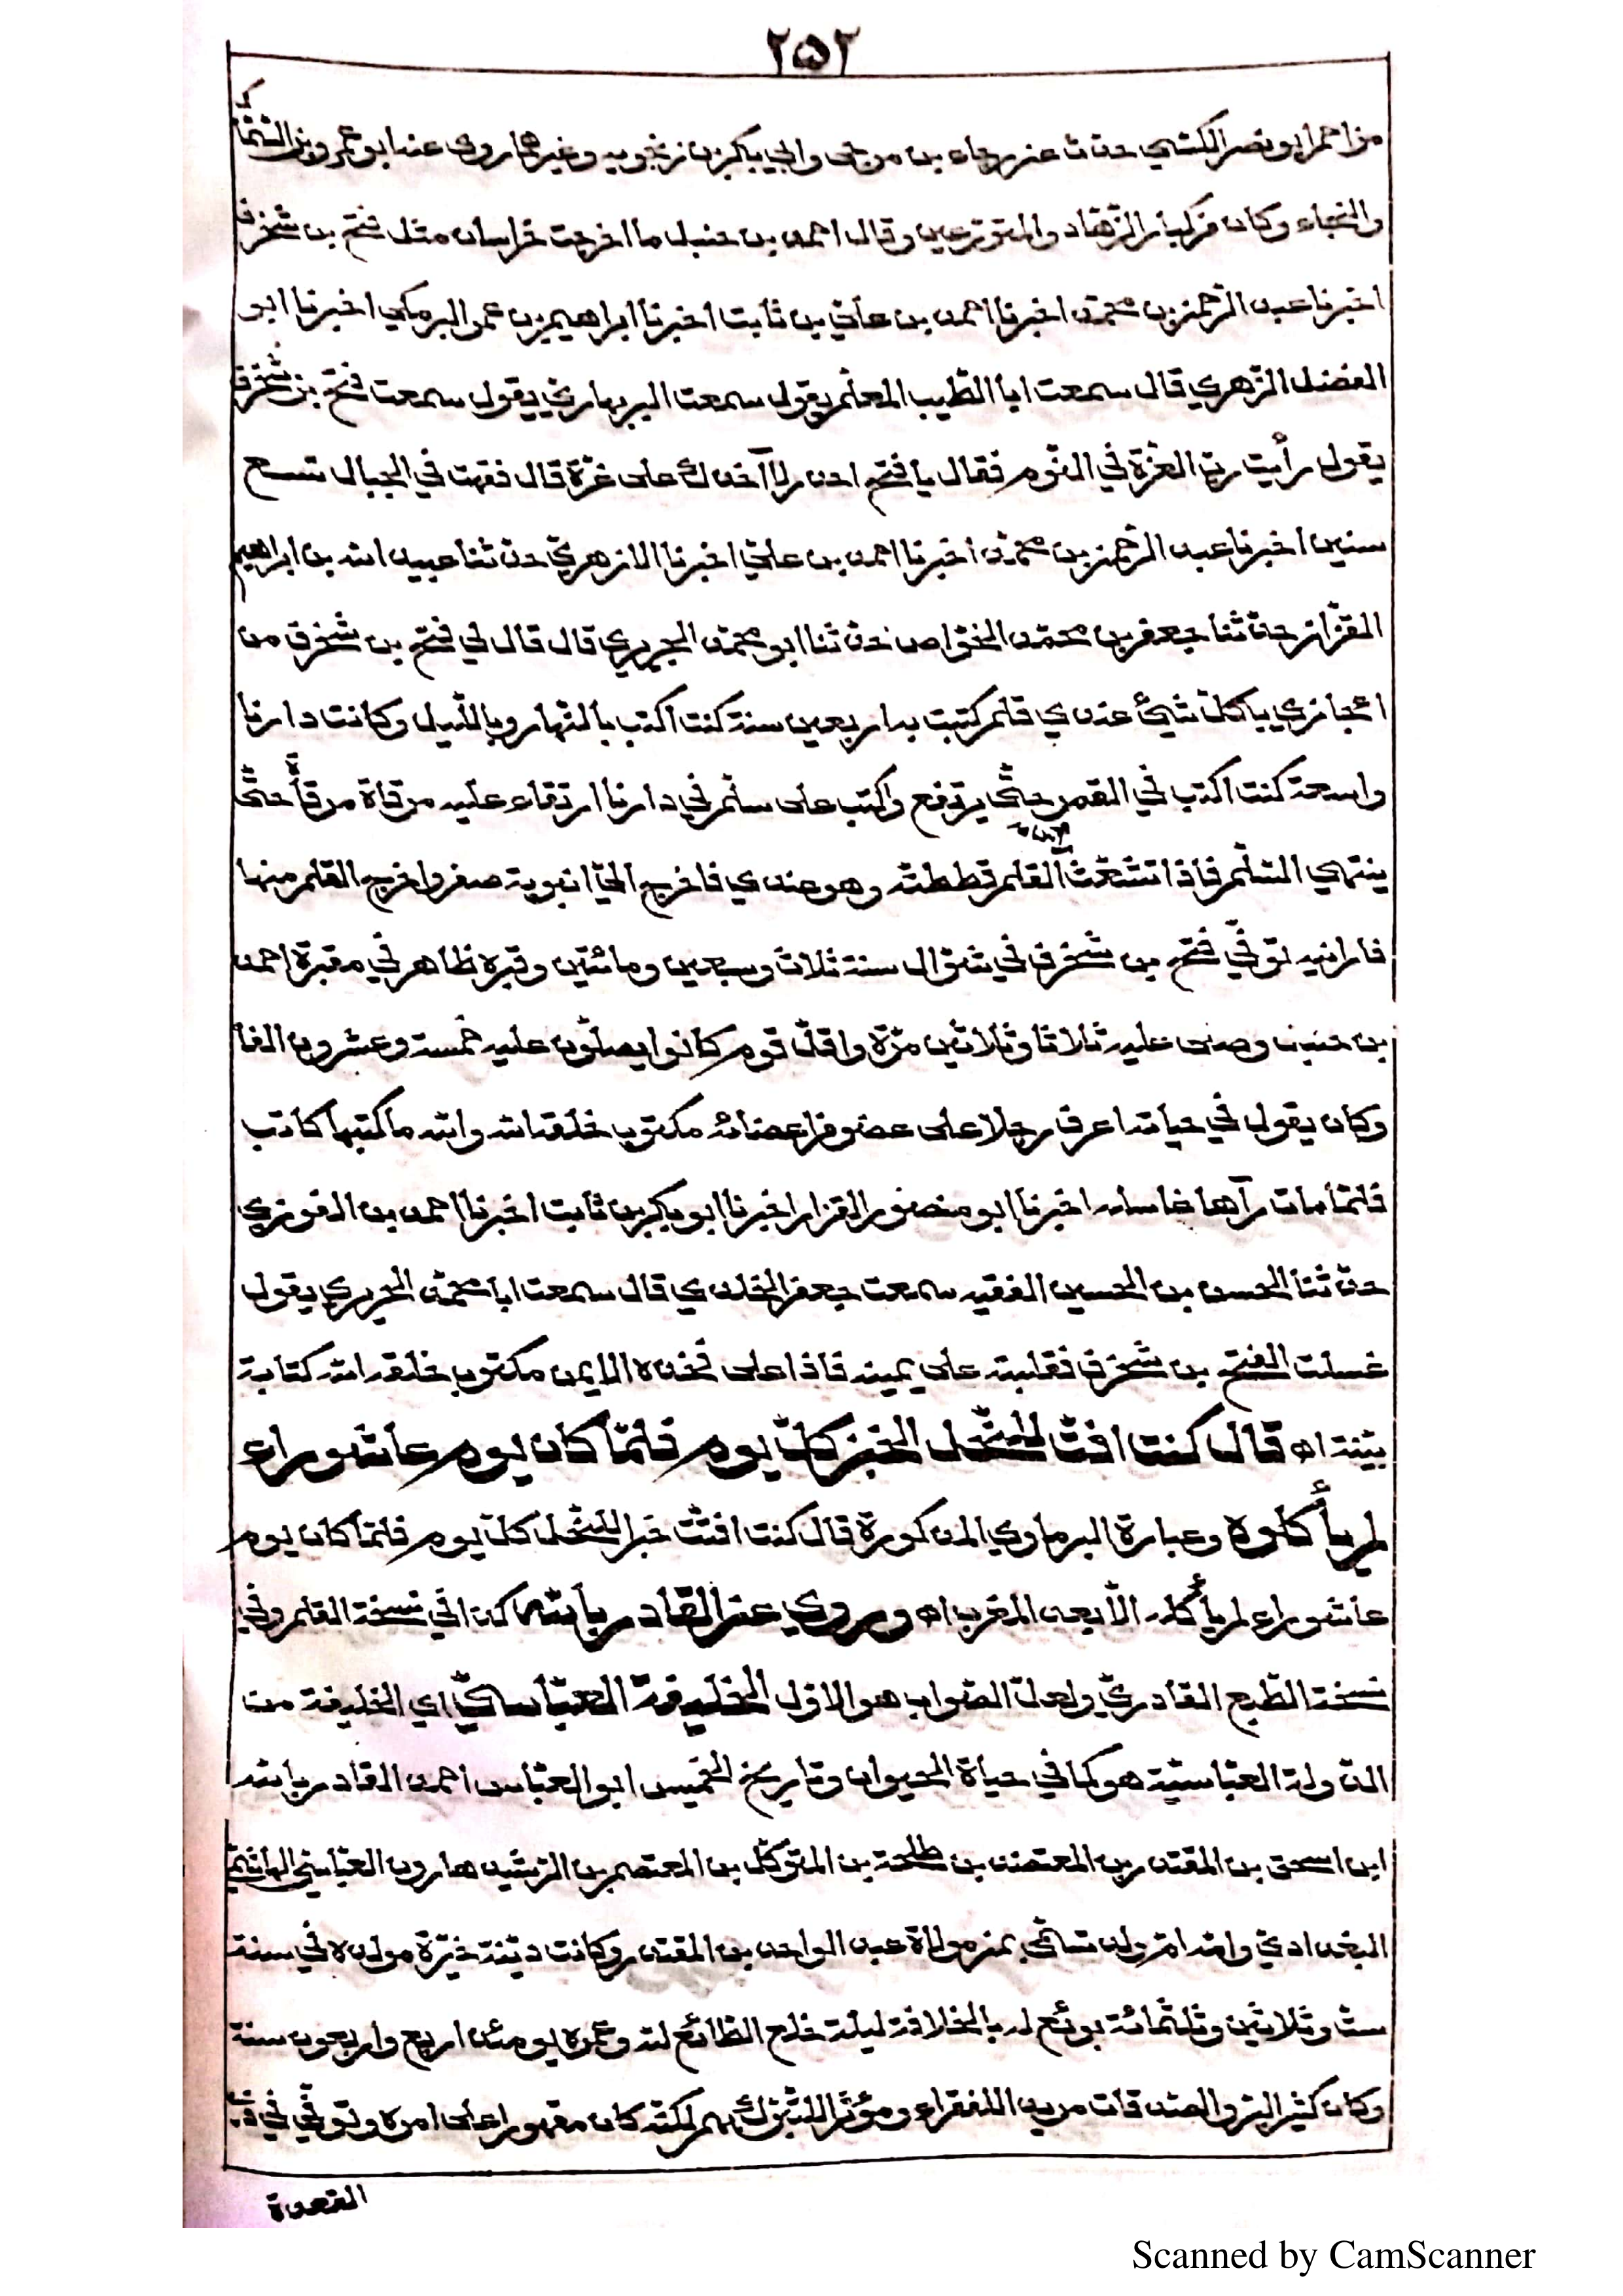 ٢٥٢
مزاحم ابو نصر الكشي حدّث عن رجاء بن مرجى وابي بكر بن زنجويه وغيرهما روى عنه ابو عمرو بن السّمّاك
والنجاد وكان من كبار الزّهّاد والمتورّعين وقال احمد بن حنبل ما اخرجت خراسان مثل فتح بن شخرف
اخبرنا عبد الرّحمن بن محمّد اخبرنا احمد بن علي بن ثابت اخبرنا ابراهيم بن عمر البرمكي اخبرنا ابو
الفضل الزّهري قال سمعت ابا الطّيب المعلّم يقول سمعت البربهاريّ يقول سمعت فتح بن شخرف
يقول رأيت ربّ العزّة في النّوم فقال يا فتح احذر لا آخذك على غرّة قال فتهت في الجبال تسع
سنين اخبرنا عبد الرّحمن بن محمّد اخبرنا احمد بن عليّ اخبرنا الازهريّ حدّثنا عبيد الله بن ابراهيم
القزّاز حدّثنا جعفر بن محمّد الخوّاص حدّثنا ابو محمّد الجريري قال قال لي فتح بن شخرف من
كلّ شئ عندي قلم كتبت به اربعين سنة كنت اكتب بالنّهار وبالليل وكانت دارنا
واسعة كنت اكتب في القمر حتّى يرتفع واكتب على سلّم في دارنا ارتقاء عليه مرقاة مرقاة حتّى
ينتهي السّلّم فاذا تشعّث القلم قططته وهو عندي فاخرج اليّ انبوبة صفر واخرج القلم منها
فارانيه توفّي فتح بن شخرف في شوّال سنة ثلاث وسبعين ومائتين وقبره ظاهر في مقبرة احمد
بن حنبل وصلى عليه ثلاثا وثلاثين مرّة واقلّ قوم كانوا يصلّون عليه خمسة وعشرون الفا
وكان يقول في حياته اعرف رجلا على عضو من اعضائه مكتوب خلقة لله والله ما كتبها كاتب
فلمّا مات رآها غاسله اخبرنا ابو منصور القزاز اخبرنا ابو بكر بن ثابت اخبرنا احمد بن الغوزي
حدّثنا الحسن بن الحسين الفقيه سمعت جعفر الخلدي قال سمعت ابا محمّد الجريري يقول
غسلت الفتح بن شخرف فقلبته على يمينه فاذا على فخذه الايمن مكتوب خلقه الله كتابة
بيّنة اه قال كنت افتّ للنّمل الخبز كلّ يوم فلمّا كان يوم عاشوراء
لم يأكلوه وعبارة البرماوي المذكورة قال كنت افتّت خبزا للنّمل كلّ يوم فلمّا كان يوم
عاشوراء لم يأكله الّا بعد المغرب اه وروي عن القادر بالله كذا في نسخة القلم وفي
نسخة الطّبع القادريّ ولعلّ الصّواب هو الاوّل الخليفة العبّاسيّ اي الخليفة من
الدّولة العبّاسيّة هو كما في حياة الحيوان وتاريخ الخميس ابو العبّاس احمد القادر بالله
ابن اسحق بن المقتدر بن المعتضد بن طلحة بن المتوكّل بن المعتصم بن الرّشيد هارون العبّاسيّ الهاشميّ
البغداديّ وامّه امّ ولد تسمّى بمن مولاة عبد الواحد بن المقتدر وكانت ديّنة خيّرة مولده في سنة
ستّ وثلاثين وثلثمائة بويع له بالخلافة ليلة خلع الطّائع لله وعمره يومئذ اربع واربعون سنة
وكان كثير البرّ والصّدقات مريدا للفقراء ومؤثرا للتّبرّك بهم لكنّه كان مقهورا على امره وتوفّي في ذي
القعدة
Scanned by CamScanner